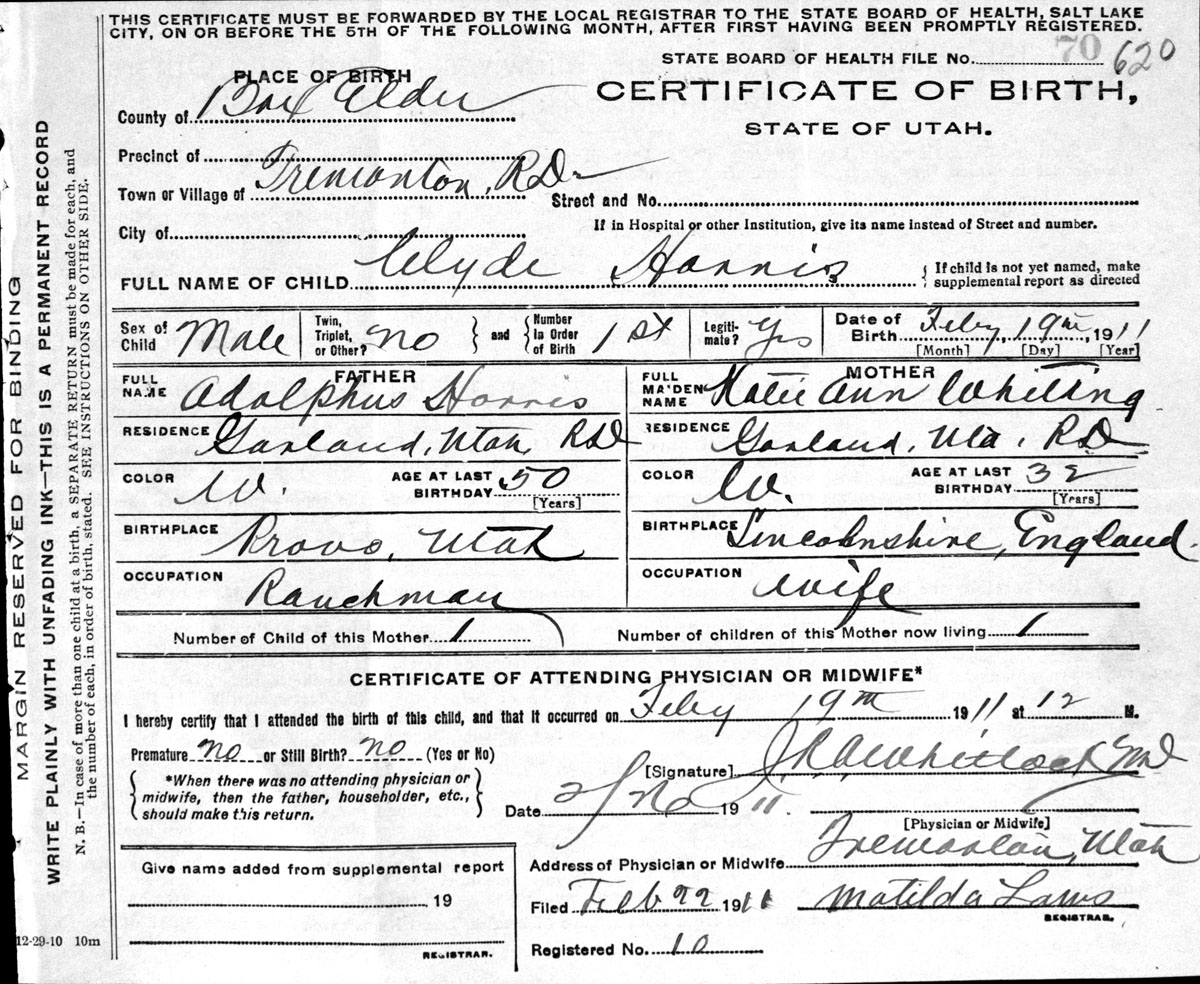 THIS CERTIFICATE MUST BE FORWARDED BY THE LOCAL REGISTRAR TO THE STATE BOARD OF HEALTH, SALT LAKE
CITY, ON OR BEFORE THE 5TH OF THE FOLLOWING MONTH, AFTER FIRST HAVING BEEN PROMPTLY REGISTERED.
STATE BOARD OF HEALTH FILE No. 70 620
PLACE OF BIRTH
CERTIFICATE OF BIRTH,
STATE OF UTAH.
County of Box Elder
Precinct of
Town or Village of Tremonton, RD
Street and No.
City of
If in Hospital or other Institution, give its name instead of Street and number.
FULL NAME OF CHILD Clyde Harris
{ If child is not yet named, make
supplemental report as directed
Sex of Child Male
Twin, Triplet, or Other? No } and { Number in Order of Birth 1st
Legiti-mate? Yes
Date of Birth Feby, 19th, 1911
[Month] [Day] [Year]
FATHER
FULL NAME Adolphus Harris
RESIDENCE Garland, Utah, RD
COLOR W. AGE AT LAST BIRTHDAY 50
[Years]
BIRTHPLACE Provo, Utah
OCCUPATION Ranchman
MOTHER
FULL MAIDEN NAME Katie Ann Whiting
RESIDENCE Garland, Uta, RD
COLOR W. AGE AT LAST BIRTHDAY 32
[Years]
BIRTHPLACE Lincolnshire, England.
OCCUPATION Wife
Number of Child of this Mother 1
Number of children of this Mother now living 1
CERTIFICATE OF ATTENDING PHYSICIAN OR MIDWIFE*
I hereby certify that I attended the birth of this child, and that it occurred on Feby 19th 1911 at 12 M.
Premature no or Still Birth? no (Yes or No)
*When there was no attending physician or
midwife, then the father, householder, etc.,
should make this return.
[Signature] Whitlock MD
Date 2/20 1911.
[Physician or Midwife]
Address of Physician or Midwife Tremonton, Utah
Give name added from supplemental report
19
REGISTRAR.
Filed Feb 22 1911 Matilda Laws
REGISTRAR.
Registered No. 10
12-29-10 10m
MARGIN RESERVED FOR BINDING
WRITE PLAINLY WITH UNFADING INK—THIS IS A PERMANENT RECORD
N. B.—In case of more than one child at a birth, a SEPARATE RETURN must be made for each, and
the number of each, in order of birth, stated. SEE INSTRUCTIONS ON OTHER SIDE.